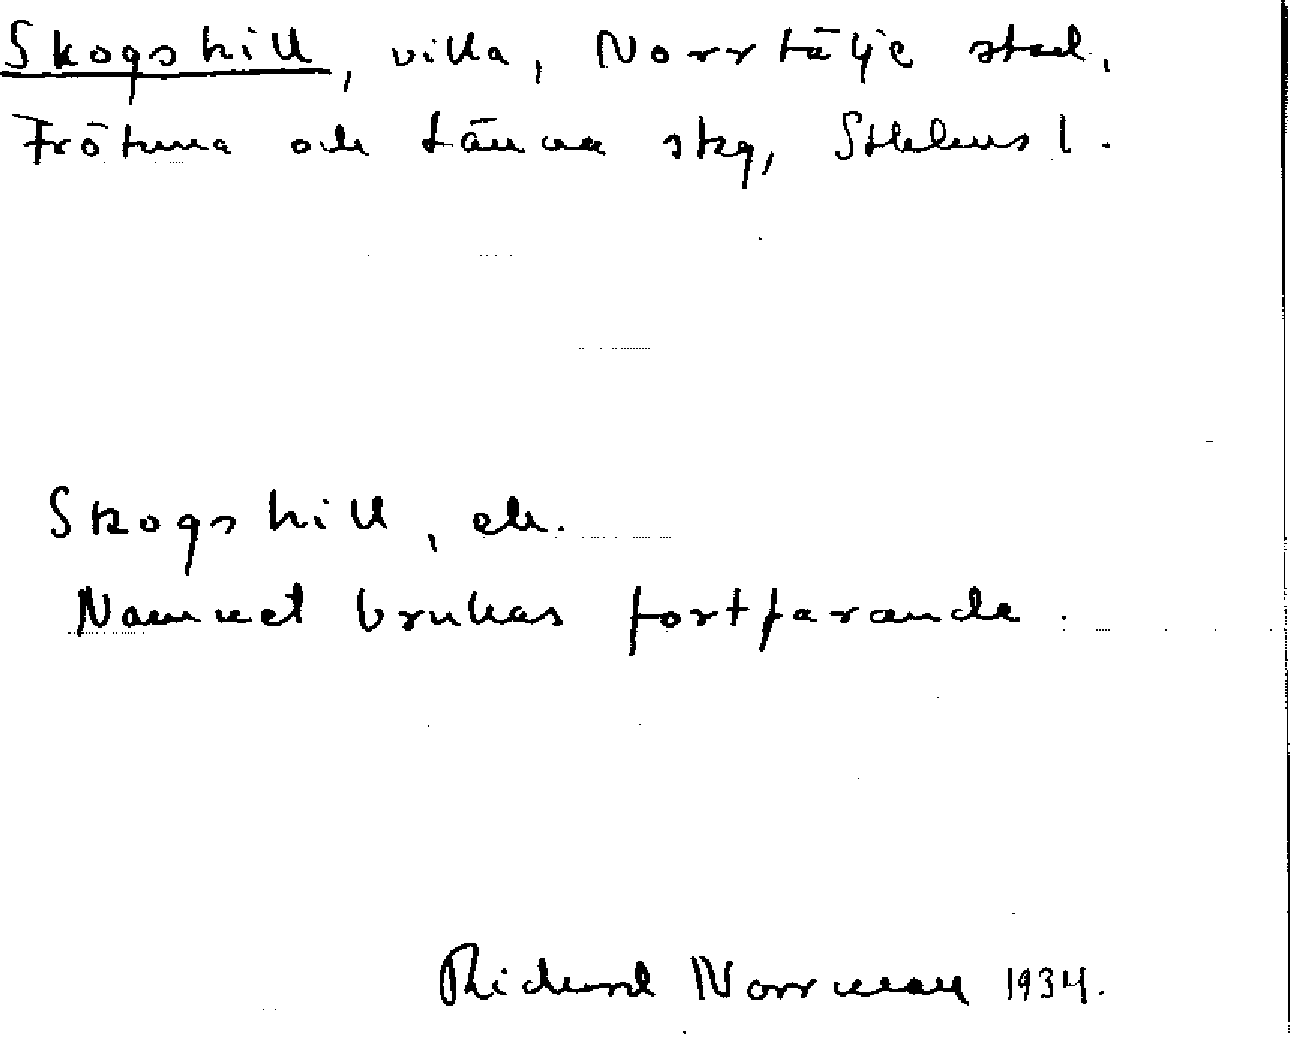 Skogshill, villa, Norrtälje stad,
Frötuna och Länna skg, Sthlms l.
Skogshill,
Namnet brukas fortfarande.
Richard Norrman 1934.